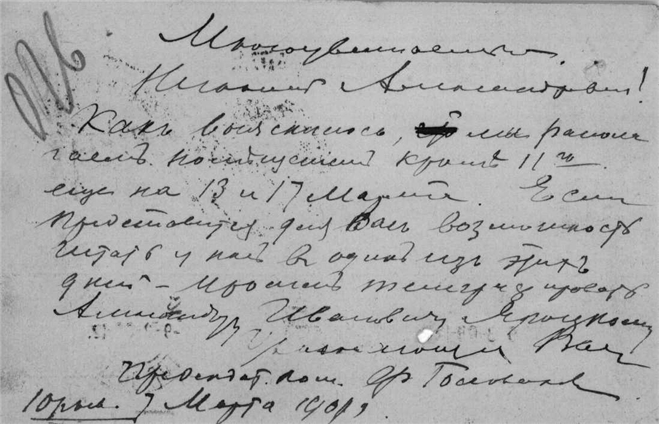 Многоуважаемый
Александрович!
Какъ выяснилось, мы распола
гаемъ помѣщеніемъ кромѣ 11го
еще на 13 и 17 Марта. Если
представится для Васъ возможность
читать у насъ въ одинъ изъ этихъ
дней – просимъ телеграфировать
Александру Ивановичу Яроцкому
Уважающій Васъ
Предсѣдат. ком.
Юрьев. 7 Марта